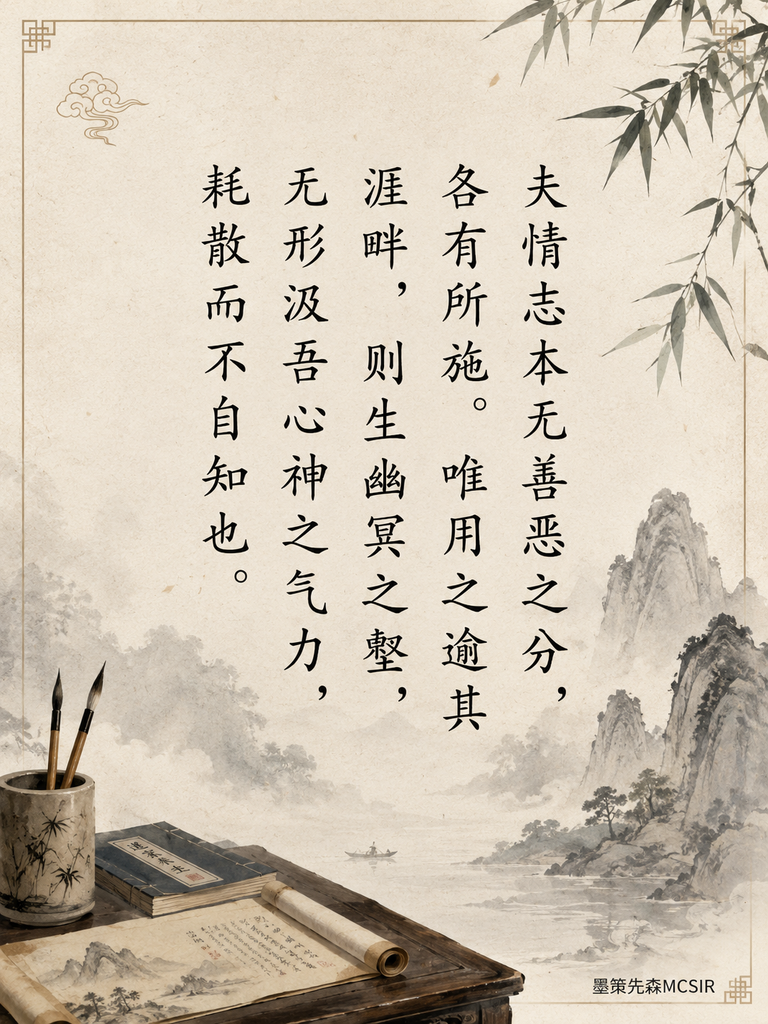 夫情志本无善恶之分，
各有所施。唯用之逾其
涯畔，则生幽冥之壑，
无形汲吾心神之气力，
耗散而不自知也。
墨策先森MCSIR